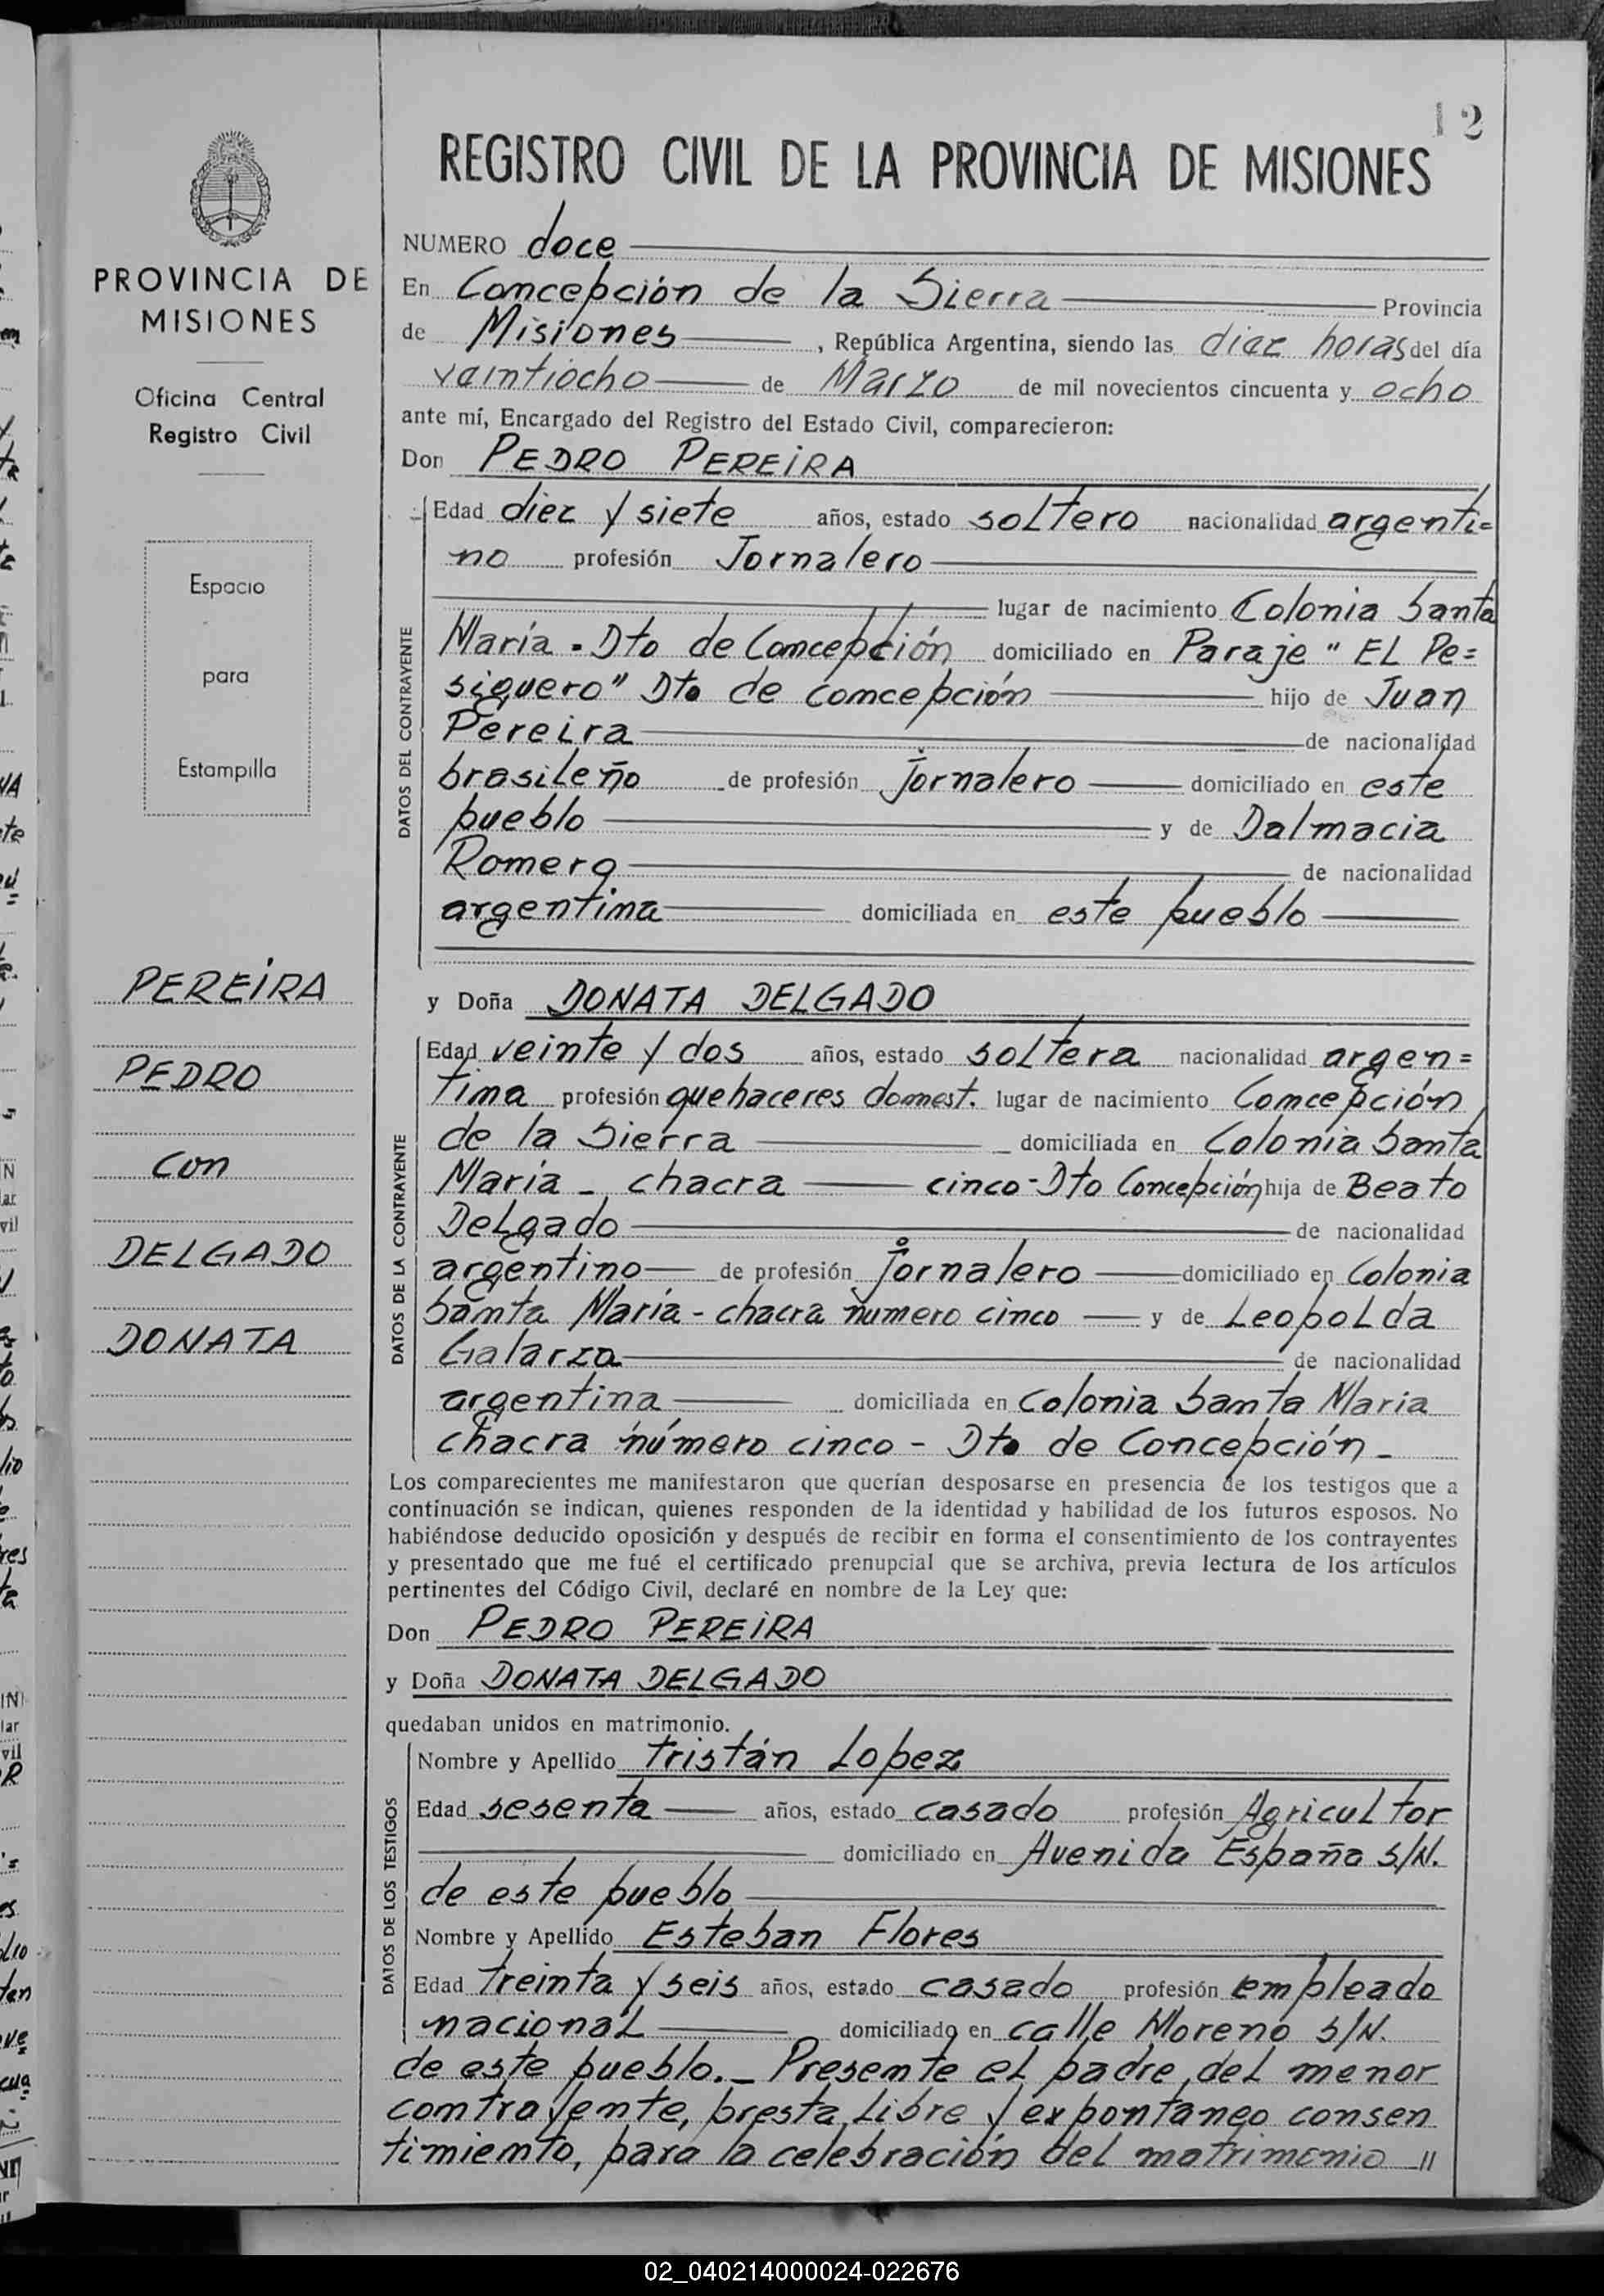 12
REGISTRO CIVIL DE LA PROVINCIA DE MISIONES
PROVINCIA DE
MISIONES
Oficina Central
Registro Civil
Espacio
para
Estampilla
PEREIRA
PEDRO
con
DELGADO
DONATA
NUMERO doce
En Concepción de la Sierra Provincia
de Misiones, República Argentina, siendo las diez horas del día
veintiocho de Marzo de mil novecientos cincuenta y ocho
ante mí, Encargado del Registro del Estado Civil, comparecieron:
Don PEDRO PEREIRA
DATOS DEL CONTRAYENTE
Edad diez y siete años, estado soltero nacionalidad argenti=
no profesión Jornalero
lugar de nacimiento Colonia Santa
María - Dto de Concepción domiciliado en Paraje "EL Pe=
siguero" Dto de Concepción hijo de Juan
Pereira de nacionalidad
brasileño de profesión jornalero domiciliado en este
pueblo y de Dalmacia
Romero de nacionalidad
argentina domiciliada en este pueblo
y Doña DONATA DELGADO
DATOS DE LA CONTRAYENTE
Edad veinte y dos años, estado soltera nacionalidad argen=
tina profesión quehaceres domest. lugar de nacimiento Concepción
de la Sierra domiciliada en Colonia Santa
María - chacra cinco - Dto Concepción hija de Beato
Delgado de nacionalidad
argentino de profesión jornalero domiciliado en Colonia
Santa María - chacra numero cinco y de Leopolda
Galarza de nacionalidad
argentina domiciliada en Colonia Santa Maria
chacra número cinco - Dto de Concepción -
Los comparecientes me manifestaron que querían desposarse en presencia de los testigos que a
continuación se indican, quienes responden de la identidad y habilidad de los futuros esposos. No
habiéndose deducido oposición y después de recibir en forma el consentimiento de los contrayentes
y presentado que me fué el certificado prenupcial que se archiva, previa lectura de los artículos
pertinentes del Código Civil, declaré en nombre de la Ley que:
Don PEDRO PEREIRA
y Doña DONATA DELGADO
quedaban unidos en matrimonio.
DATOS DE LOS TESTIGOS
Nombre y Apellido Tristán Lopez
Edad sesenta años, estado casado profesión Agricultor
domiciliado en Avenida España S/N.
de este pueblo
Nombre y Apellido Esteban Flores
Edad treinta y seis años, estado casado profesión empleado
nacional domiciliado en calle Moreno S/N.
de este pueblo.- Presente el padre del menor
contrayente, presta libre y expontaneo consen
timiento, para la celebración del matrimonio //
02_040214000024-022676